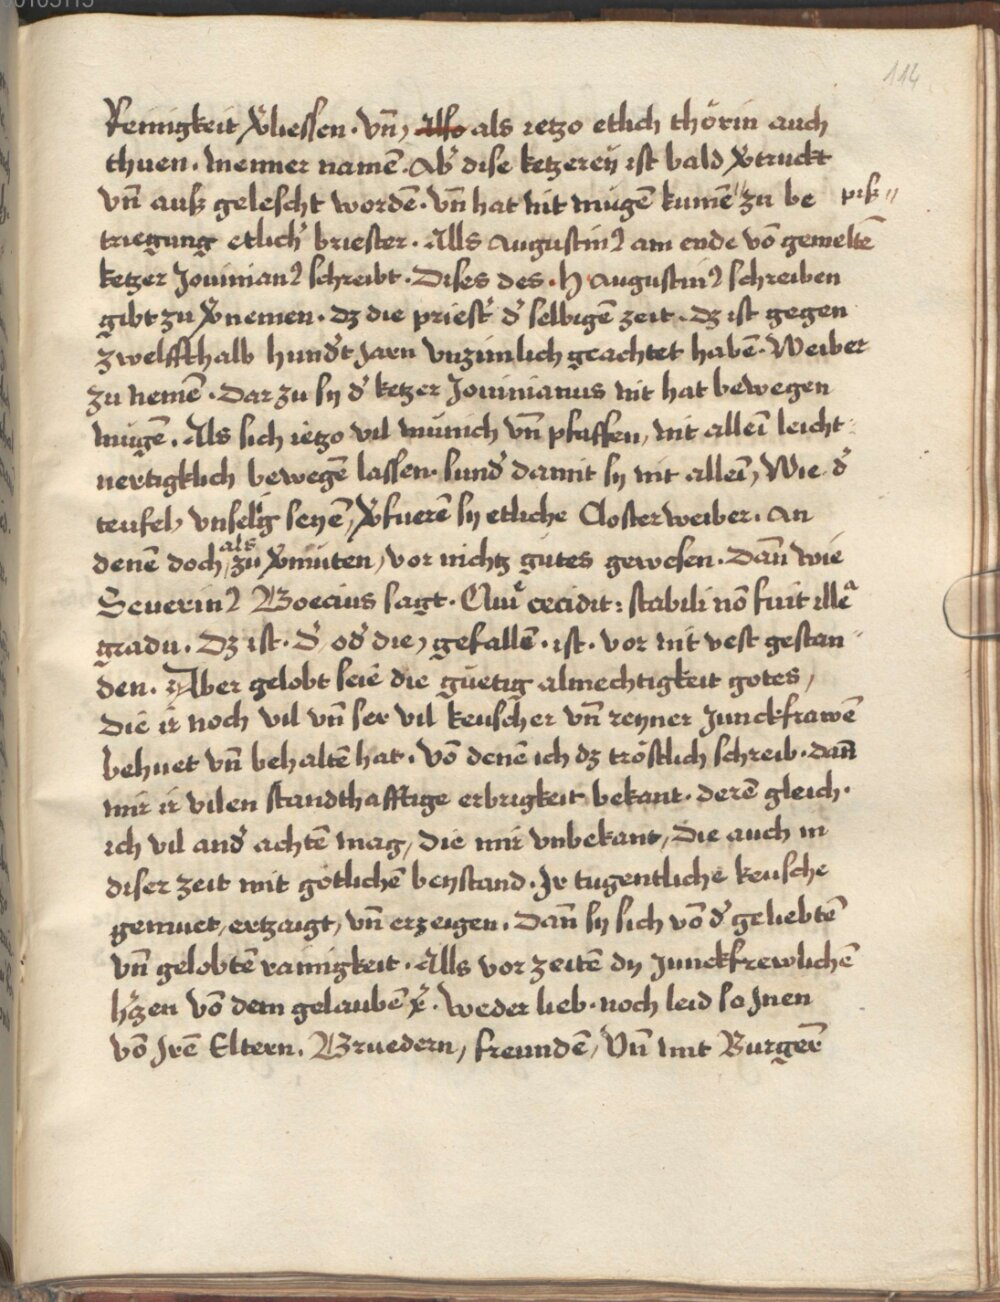 00103115
114
Reinigkeit v̄liessen. vn̄, Also als ietzo etlich thörin auch
thuen. meiner namē. Ab' dise ketzereÿ ist bald v̄truckt
vn̄ ausz gelescht wordē. vn̄ hat nit mügē kumē zu be
triegung etlich' briester. Alls augustin9 am ende vō gemeltē
ketzer Jouinian9 schreibt. Dises des. H augustin9 schreiben
gibt zu v̄nemen. dz die priest' d' selbigē zeit. dz ist gegen
zwelffthalb hund't Jarn vnzimlich geachtet habē. Weiber
zu nemē. Dar zu sy d' ketzer Jouinianus nit hat bewegen
mügē. Als sich ietzo vil münich vn̄ pfaffen, nit alleī leicht
uertigklich bewegē lassen. sund' damit sy nit alleī, Wie d'
teufel, vnselig seyē, v̄fuerē sy etliche Closterweiber. an
denē doch, als zu v̄muten, vor nichtz gutes gewesen. Dan̄ wie
Seuerin9 Boecius sagt. Qui cecidit: stabili nō fuit ille
gradu. Dz ist. d' od' die, gefallē. ist. vor nit vest gestan
den. Aber gelobt seie die güetig almechtigkeit gotes,
die ir noch vil vn̄ ser vil keuscher vn̄ reyner Junckfrawē
behuet vn̄ behaltē hat. Vō denē ich dz tröstlich schreib. dan̄
mir ir vilen standthafftige erbrigkeit bekant. derē gleich.
ich vil and' achtē mag, die mir vnbekant, die auch in
diser zeit mit götlichē beystand. Jr tugentliche keusche
gemuet, ertzaigt, vn̄ erzeigen. Dan̄ sy sich vō d' geliebtē
vn̄ gelobtē rainigkeit. Alls vor zeitē dy Junckfrewlichē
h'tzen vō dem gelaubē x̄. weder lieb. noch leid so Jnen
vō Jrē Eltern. Bruedern, freundē, Vn̄ mit Burger̄